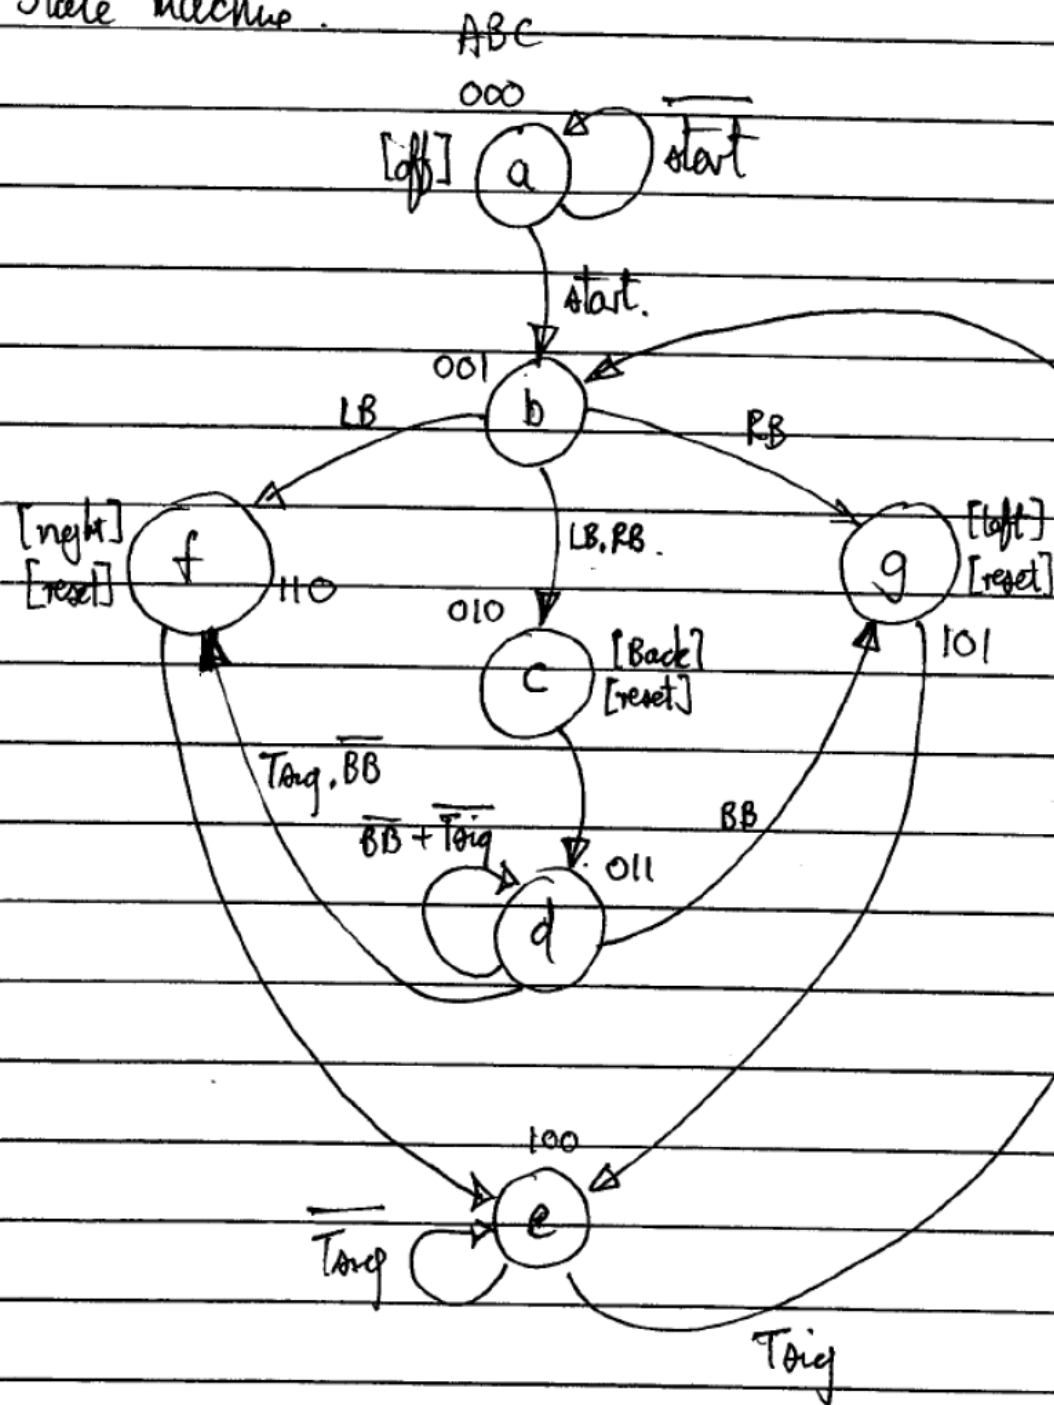 State Machine.
ABC
000
[off] a s̅t̅a̅r̅t̅
start.
001
b
LB RB
[right] [left]
f LB.RB. g
[reset] 110 [reset]
010 101
[Back]
c
[reset]
Tsig.B̅B̅
B̅B̅ + T̅s̅i̅g̅ BB
011
d
100
e
T̅s̅i̅g̅
Tsig